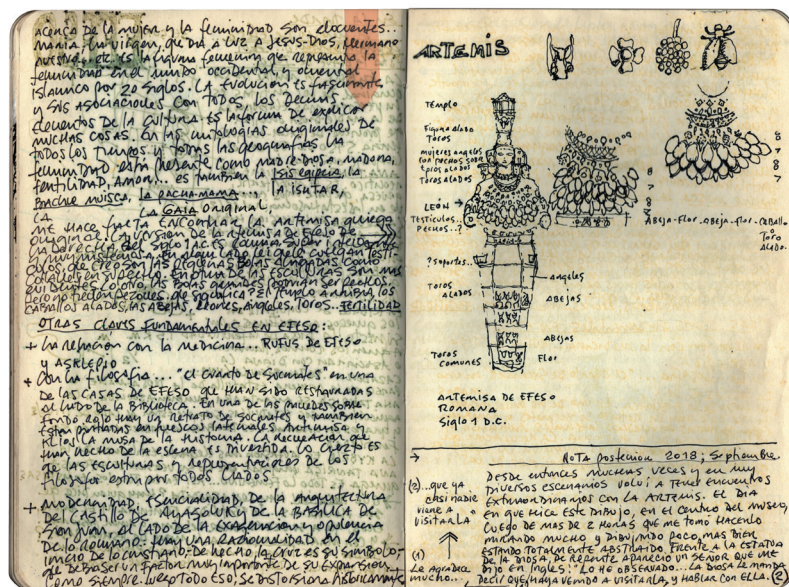 ACERCA DE LA MUJER Y LA FEMINIDAD SON ELOCUENTES..
MARIA. UN VIRGEN, QUE DIO A LUZ A JESUS-DIOS, HERMANO
NUESTRO, etc. ES LA FIGURA FEMENINA QUE REPRESENTA LA
FEMINIDAD EN EL MUNDO OCCIDENTAL, Y ORIENTAL
ISLAMICO POR 20 SIGLOS. LA EVOLUCION ES FASCINANTE
Y SUS ASOCIACIONES CON TODOS LOS DEMAS
ELEMENTOS DE LA CULTURA ES LA FORMA DE EXPLICAR
MUCHAS COSAS. EN LAS MITOLOGIAS ORIGINALES DE
TODOS LOS TIEMPOS Y TODAS LAS GEOGRAFIAS LA
FEMINIDAD ESTA PRESENTE COMO MADRE-DIOSA, MADONA,
FERTILIDAD, AMOR... ES TAMBIEN LA ISIS EGIPCIA, LA
BACHUE MUISCA, LA PACHA-MAMA... LA ISHTAR,
LA GAIA ORIGINAL,
ME HACE FALTA ENCONTRAR LA ARTEMISA GRIEGA
ORIGINAL. LA VERSION DE ARTEMISA DE EFESO DE
LA DERECHA DEL SIGLO 1 AC ES
Y MUY MISTERIOSA. EN ALGUN LADO LEI QUE LE CUELGAN TESTI-
CULOS DE
COLLAR EN SU PECHO. EN OTRA DE LAS ESCULTURAS SON MAS
EVIDENTES
PERO NO TIENEN PEZONES. QUE SIGNIFICA? EL TEMPLO ARRIBA, LOS
CABALLOS ALADOS, LAS ABEJAS, LEONES, ANGELES, TOROS... FERTILIDAD
OTRAS CLAVES FUNDAMENTALES EN EFESO:
+ LA RELACION CON LA MEDICINA... RUFUS DE EFESO
Y ASKLEPIO
+ CON LA FILOSOFIA... "EL CUARTO DE SOCRATES" EN UNA
DE LAS CASAS DE EFESO QUE HAN SIDO RESTAURADAS
AL LADO DE LA BIBLIOTECA. EN UNA DE LAS PAREDES SOBRE
FONDO ROJO HAY UN RETRATO DE SOCRATES Y TAMBIEN
ESTAN PINTADAS EN FRESCOS LATERALES ARTEMISA Y
KLIO, LA MUSA DE LA HISTORIA. LA RECREACION QUE
HAN HECHO DE LA ESCENA ES DIVERTIDA. LO CIERTO ES
QUE LAS ESCULTURAS Y REPRESENTACIONES DE LOS
FILOSOFOS ESTAN POR TODOS LADOS
+ MODERNIDAD, ESENCIALIDAD, DE LA ARQUITECTURA
DEL CASTILLO DE AYASOLUK Y DE LA BASILICA DE
SAN JUAN, AL LADO DE LA EXAGERACION Y OPULENCIA
DE LO ROMANO. HAY UNA RACIONALIDAD EN EL
INICIO DE LO CRISTIANO. DE HECHO, LA CRUZ ES SU SIMBOLO
QUE DEBA SER UN FACTOR MUY IMPORTANTE DE SU EXPANSION.
COMO SIEMPRE, LUEGO TODO ESO, SE DISTORSIONA
ARTEMIS
TEMPLO
Figuras aladas
TOROS
mujeres angeles
con pechos sobre
TOROS ALADOS
LEÓN
TESTICULOS..
PECHOS..?
? SOPORTES..
TOROS
ALADOS
TOROS
COMUNES
ANGELES
ABEJAS
ABEJAS
FLOR
8
7
8
7
ABEJA-FLOR-ABEJA-FLOR-CABALLO
O
TORO
ALADO.
ARTEMISA DE EFESO
ROMANA
Siglo 1 D.C.
→ NOTA posterior 2018; Septiembre.
DESDE entonces MUCHAS VECES y en muy
DIVERSOS ESCENARIOS VOLVI A TENER ENCUENTROS
EXTRAORDINARIOS CON LA ARTEMIS. EL DIA
EN QUE HICE ESTE DIBUJO, EN EL CENTRO DEL MUSEO,
LUEGO DE MAS DE 2 HORAS QUE ME TOMÓ HACERLO
MIRANDO MUCHO Y DIBUJANDO POCO, MAS BIEN
ESTANDO TOTALMENTE ABSTRAIDO FRENTE A LA ESTATUA
DE LA DIOSA, DE REPENTE APARECIO UN SEÑOR QUE ME
DIJO EN INGLES: "LO HE OBSERVADO... LA DIOSA LE MANDA
DECIR QUE HAYA VENIDO A VISITARLA, Y HABLAR CON ELLA (2)
(2)...QUE YA
CASI NADIE
VIENE A
VISITARLA
(1)
LE AGRADECE
MUCHO...